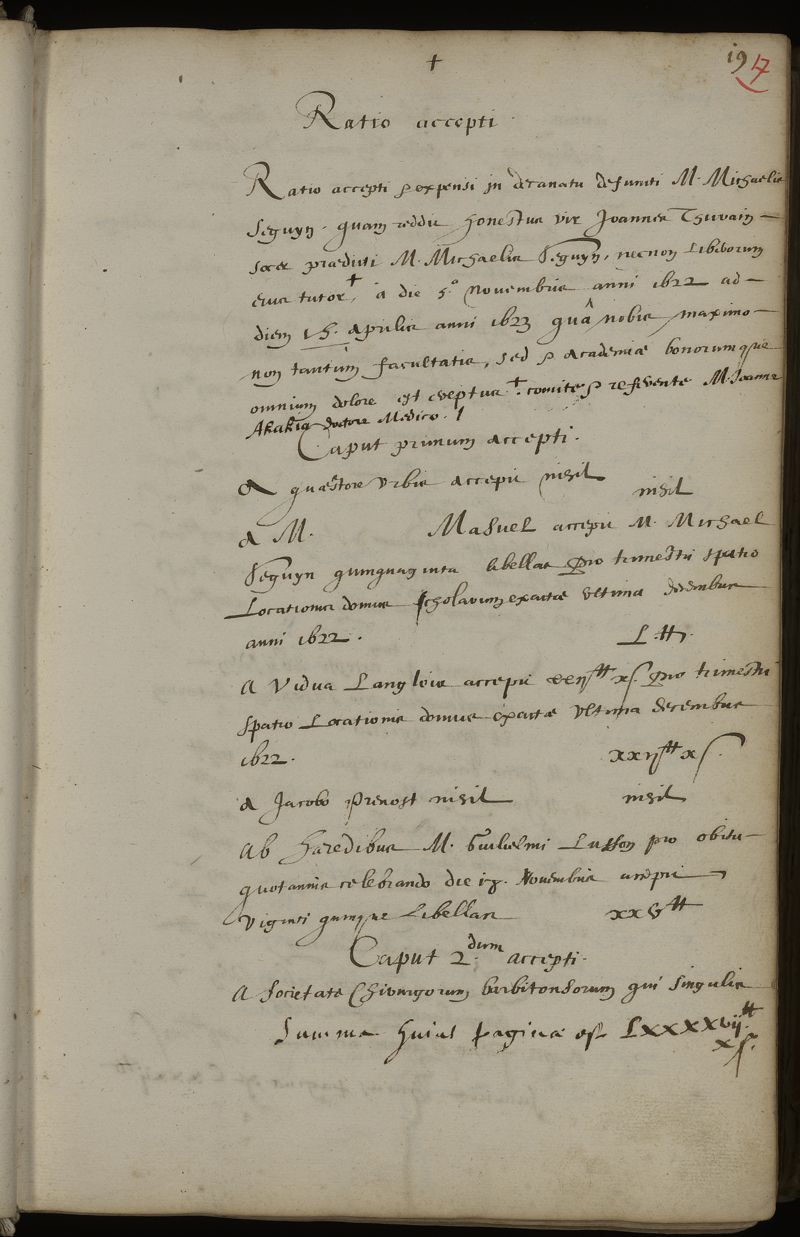 +
19 17
Ratio accepti
Ratio accepti & expensi in decanatu defuncti M. Michaelis
Seguyn, quam reddit honestus vir Joannes Thuvain
socer prædicti M. Michaelis Seguyn, necnon liberorum
eius tutor +, a die 5.º Novembris anni 1622 ad
diem 15. Aprilis anni 1623 quâ nobis maximo
non tantùm facultatis, sed & academiæ bonorumque
omnium dolore est ereptus +. comite & referente M. Joanne
Akakia doctore Medico. /
Caput primum accepti.
A quæstore urbis accepit nihil nihil
A M. Masuel accepit M. Michael
Seguyn quinquaginta libellas pro trimestri spatio
Locationis domus scholarum exactæ ultima decembris
anni 1622. L. tt.
A Vidua Langlois accepit xxij tt x s. pro trimestri
spatio Locationis domus exactæ ultima decembris
1622. xxij tt x s.
A Jacobo Prevost nihil nihil
Ab hæredibus M. Guilielmi Lusson pro obitu
quotannis celebrando die Novembris accepit
viginti quinque Libellas xxv tt
Caput 2.dum accepti.
A societate Chirurgorum barbitonsorum qui singulis
Summa huius paginæ est Lxxxxvij tt
x s.